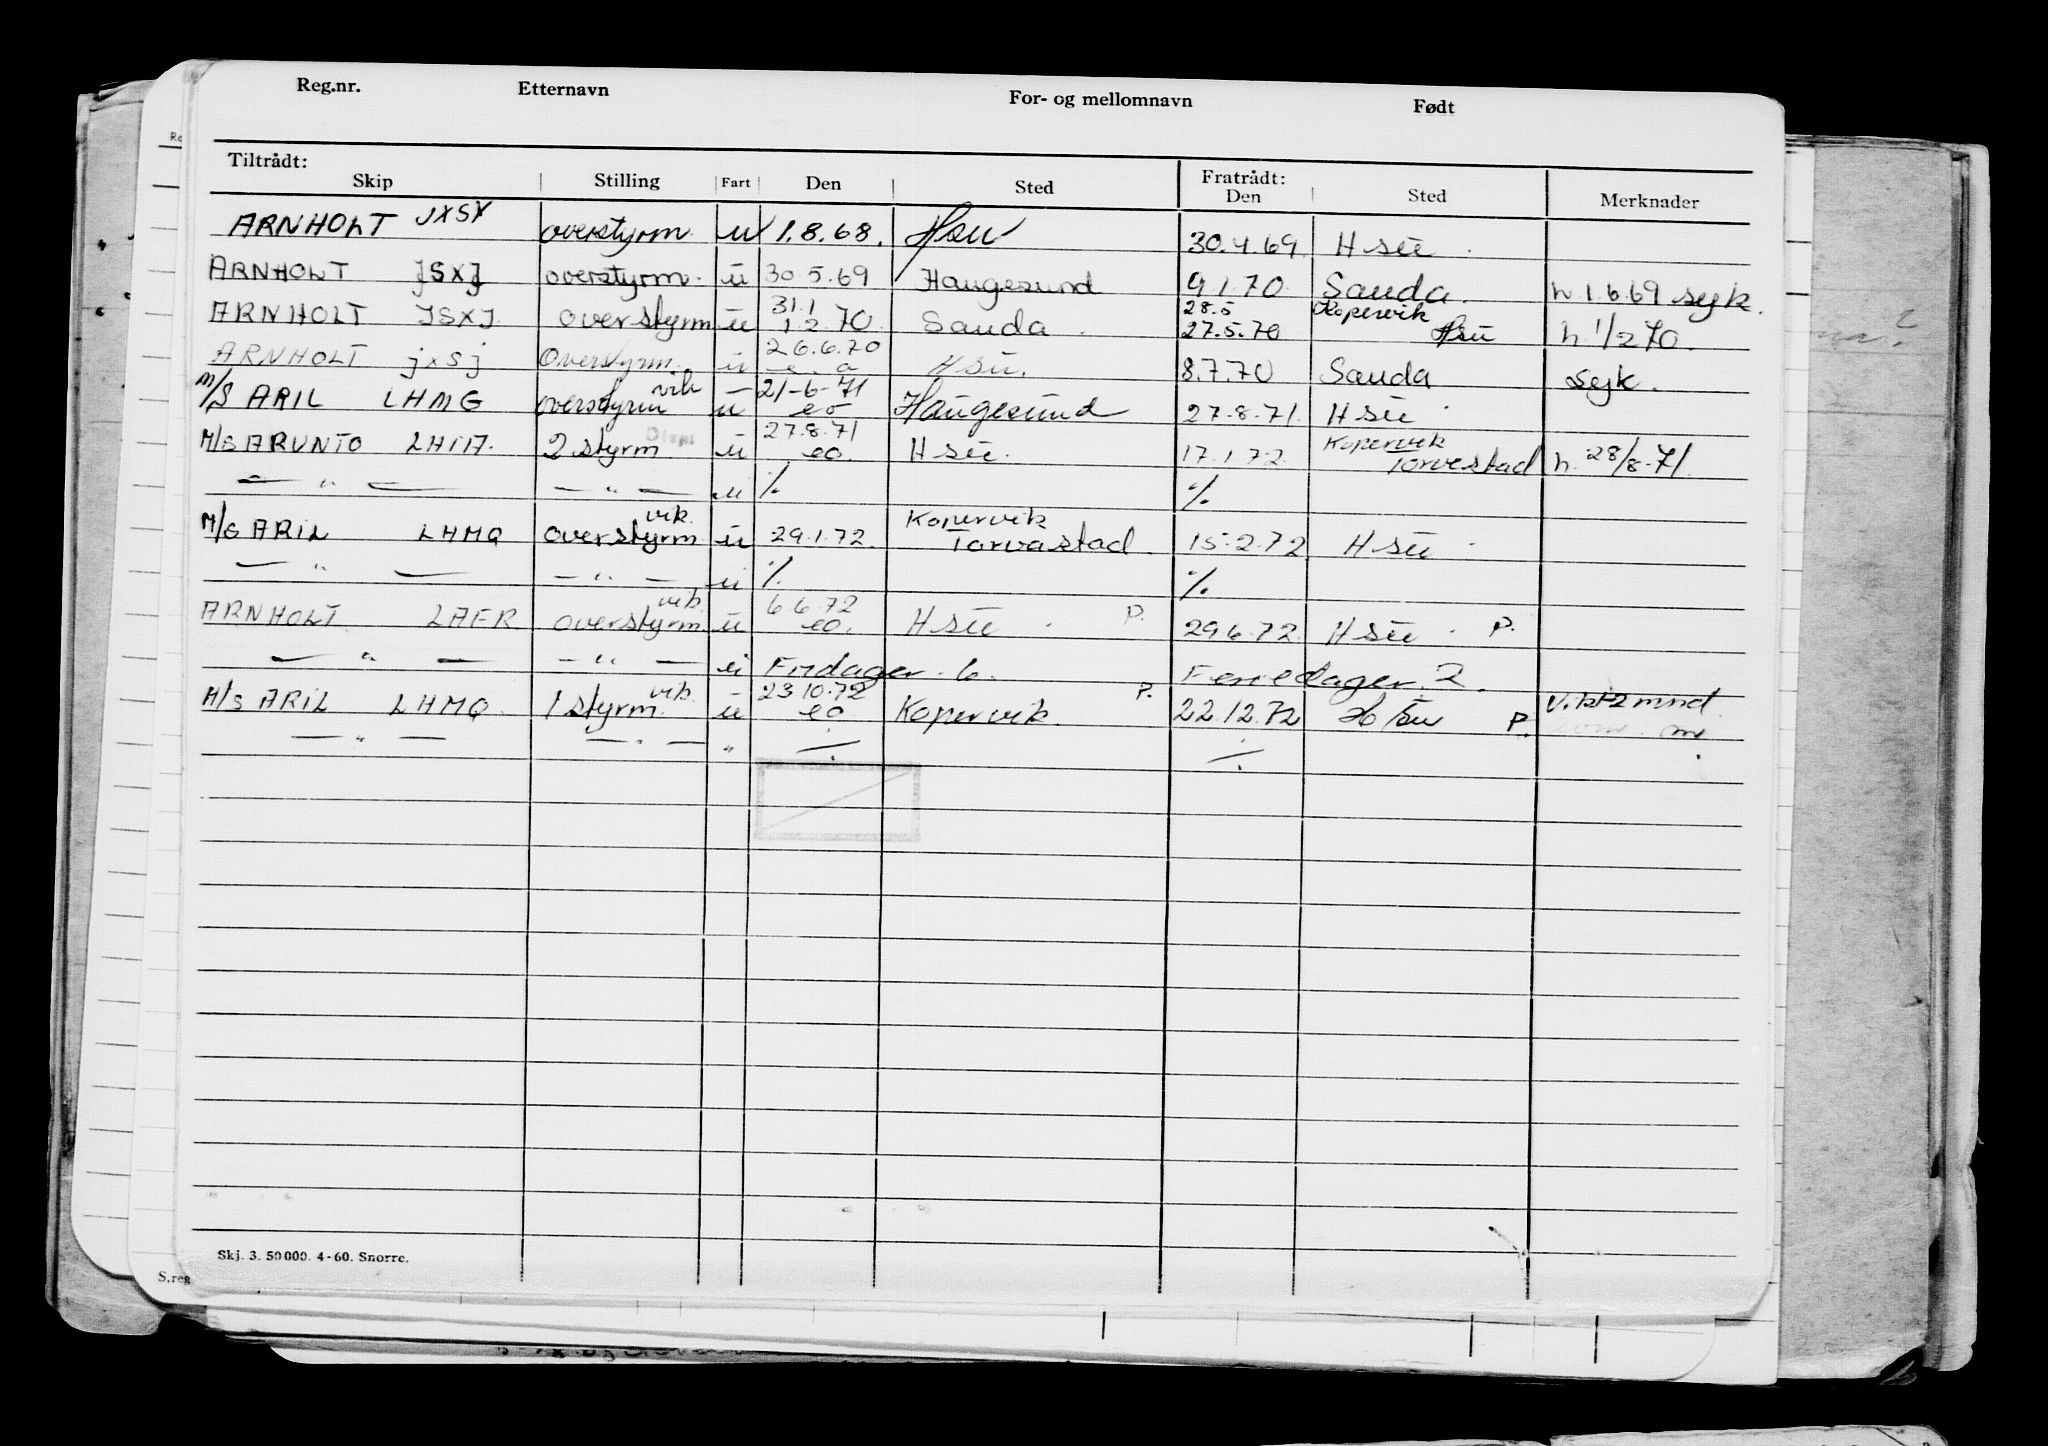 Reg.nr. Etternavn For- og mellomnavn Født
Tiltrådt: Fratrådt:
Skip Stilling Fart Den Sted Den Sted Merknader
ARNHOLT JXSX overstyrm. u 1.8.68. Hsu 30.4.69. H su
ARNHOLT JSXJ overstyrm. u 30.5.69 Haugesund 9.1.70. Sauda. h 1.6.69 syk.
ARNHOLT JSXJ overstyrm u 31.1 1.2.70. Sauda. 28.5 27.5.70 Kopervik Hsu h. 1/2 70.
ARNHOLT jxsj Overstyrm. u 26.6.70 e.o Hsu. 8.7.70 Sauda syk.
M/S ARIL LHMG overstyrm vik u 21-6-71 eo Haugesund 27.8.71. H su
M/S ARUNTO LHIA. 2 styrm u 27.8.71 eo. H su. 17.1.72. Kopervik Torvestad h. 28/8-71.
— " — — " — u %. %.
M/S ARIL LHMQ overstyrm vik. u 29.1.72. Kopervik Torvastad. 15.2.72 H su
— " — — " — u %. %.
ARNHOLT LAER overstyrm. vik. u 6.6.72 eo. H su P. 29.6.72. H su. P.
— " — — " — u Fridager. 6. Feriedager. 2.
M/S ARIL LHMQ. 1 styrm. vik. u 23.10.72 eo Kopervik. P. 22.12.72 H su P. V. kt 2 mnd
— " — — " — " ÷ ÷
Skj. 3. 50 000. 4-60. Snorre.
S.reg